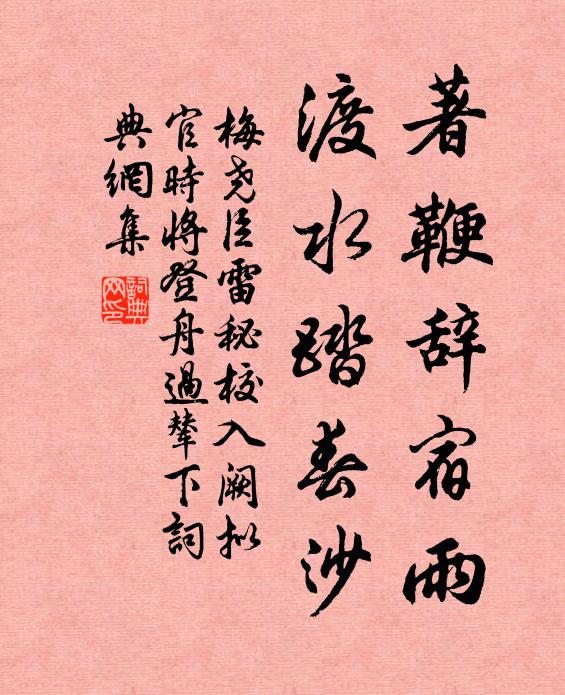 著鞭辞宿雨
渡水踏春沙
梅尧臣雷秘校入阙拟
官时将登舟過辇下詞
典網集
詞典网印